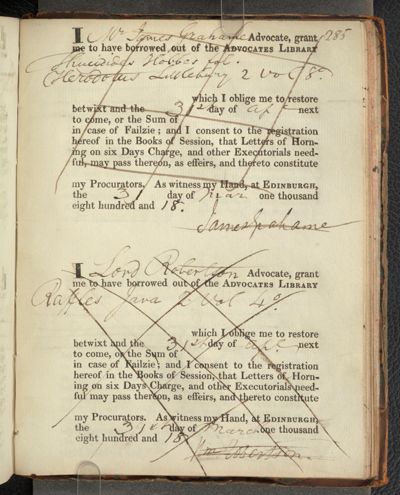 I Mr James Grahame Advocate, grant 285
me to have borrowed out of the ADVOCATES LIBRARY
Thucidides Hobbes fol.
Herodotus Littlebury 2 vol 8o
which I oblige me to restore
betwixt and the 31st day of apl next
to come, or the Sum of
in case of Failzie; and I consent to the registration
hereof in the Books of Session, that Letters of Horn-
ing on six Days Charge, and other Executorials need-
ful, may pass thereon, as effeirs, and thereto constitute
my Procurators. As witness my Hand, at EDINBURGH,
the 31 day of Mar one thousand
eight hundred and 18.
James Grahame
I Lord Robertson Advocate, grant
me to have borrowed out of the ADVOCATES LIBRARY
Raffles Java 2 Vol 4o.
which I oblige me to restore
betwixt and the 31st day of apl next
to come, or the Sum of
in case of Failzie; and I consent to the registration
hereof in the Books of Session, that Letters of Horn-
ing on six Days Charge, and other Executorials need-
ful may pass thereon, as effeirs, and thereto constitute
my Procurators. As witness my Hand, at EDINBURGH,
the 31 day of March one thousand
eight hundred and 18